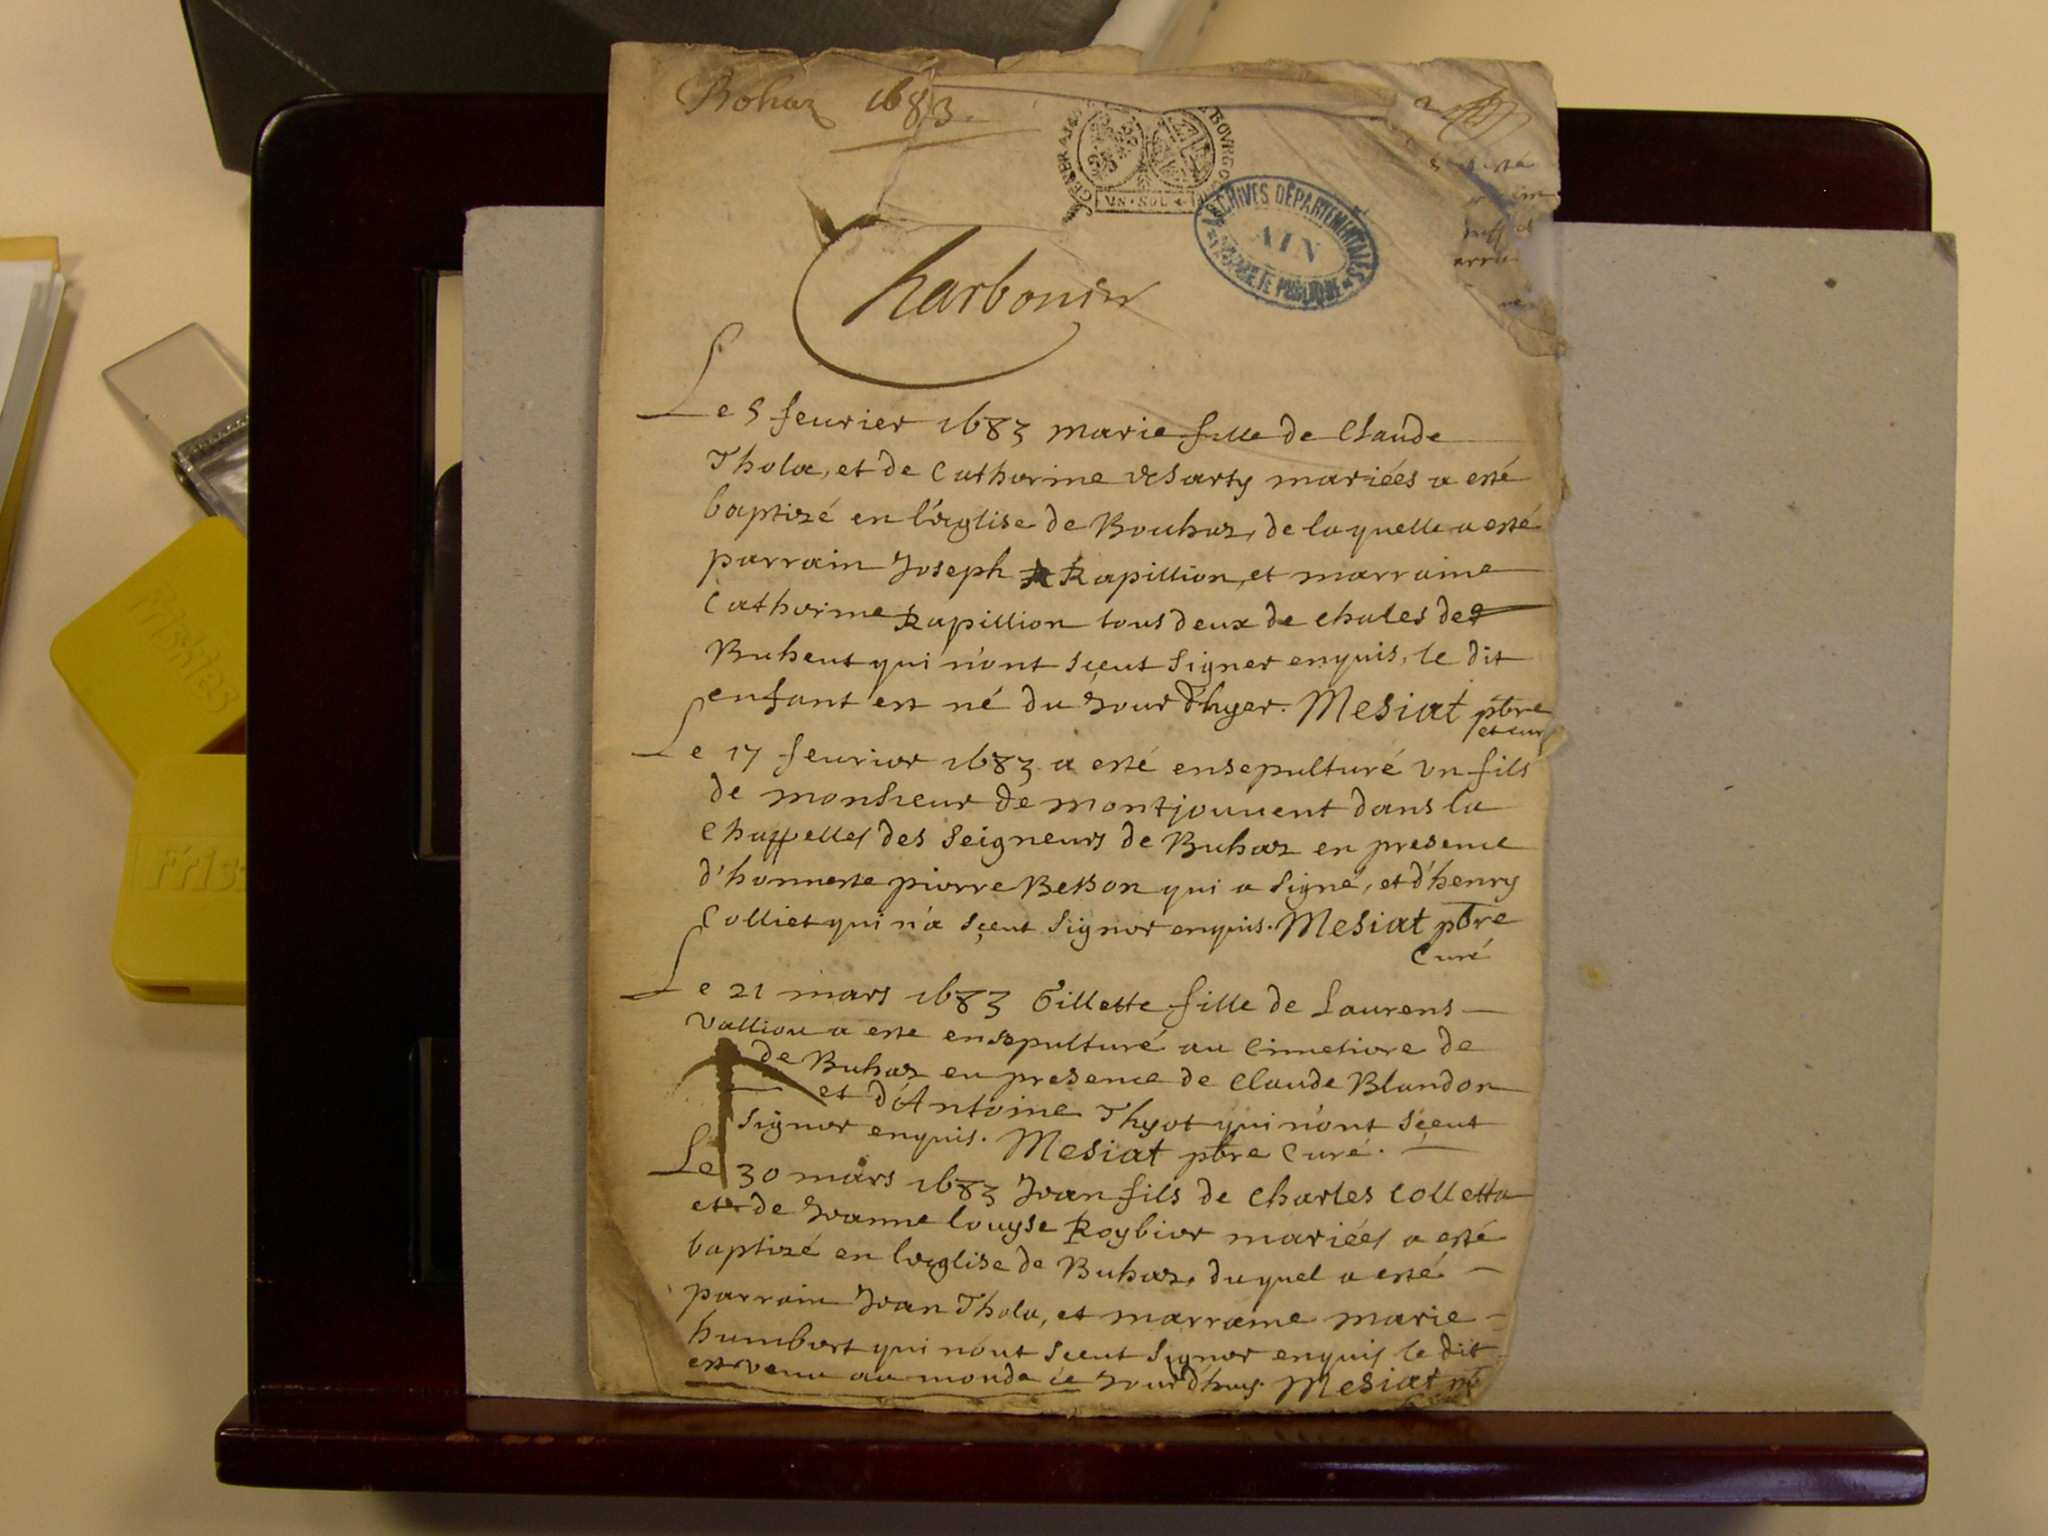 Bohaz 1683.
BOVRGO
VN · SOL
ARCHIVES DÉPARTEMENTALES
AIN
Charbonier
Le 5 feurier 1683 marie fille de Claude
Thola, et de Catherine mariées a esté
baptizé en l'œglise de Bouhaz, de laquelle a esté
parrain Joseph Rapillion, et marraine
Catherine Rapillion tous deux de chales de
Buhent qui n'ont sçeut signer enquis, le dit
enfant est né du jour d'hyer. Mesiat pbre
et cur
Le 17 feurier 1683 a esté ensepulturé vn fils
de monsieur de montjouuent dans la
chappelles des seigneurs de Buhaz en presence
d'honneste pierre Besson qui a signé, et d'henry
Colliet qui n'a sçeut signer enquis. Mesiat pbre
Curé
Le 21 mars 1683 Gillette fille de Laurens
Valliou a este ensepulturé au cimetiere de
de Buhaz en presence de Claude Blandon
et d'Antoine Thyot qui n'ont sçeut
signer enquis. Mesiat pbre Curé.
Le 30 mars 1683 Jean fils de Charles Colletta
et de Jeanne louyse Roybier mariées a esté
baptizé en l'œglise de Buhaz, duquel a esté
parrain Jean Thola, et marraine marie
humbert qui n'out sçeut signer enquis le dit
est venu au monde ce jourd'huy. Mesiat
Friskies
Fris